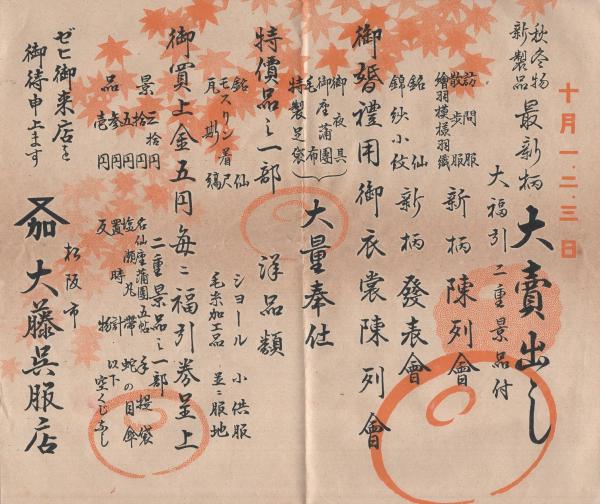 十月一、二、三日
秋冬物
新製品
最新柄
大賣出し
大福引 二重景品付
訪問服
散歩服
繪羽模様羽織
新柄 陳列會
銘仙
錦紗小紋
新柄 發表會
御婚禮用御衣裳陳列會
御夜具
御座蒲團
毛布
特製足袋
大量奉仕
特價品之一部
銘仙
モスリン着尺
瓦斯縞
洋品類
ショール 小供服
毛糸加工品 並ニ服地
御買上金五円毎ニ福引券呈上
景品
三拾円
拾円
五円
参円
壱円
二重景品之一部
名仙座蒲團五帖 手提袋
塩瀬丸帯 蛇の目傘
置時計 以下
反物 空くじなし
ゼヒ御来店を
御待申上ます
松阪市
加 大藤呉服店